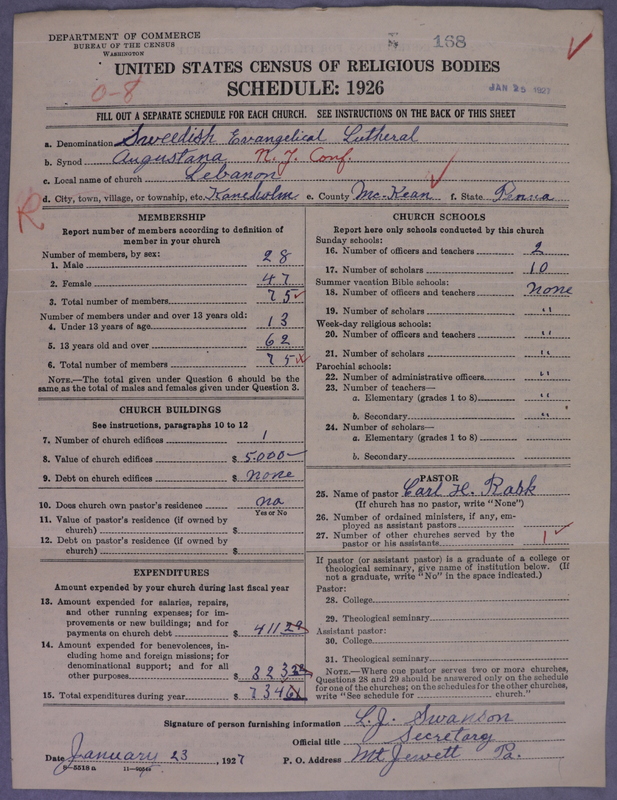 DEPARTMENT OF COMMERCE
BUREAU OF THE CENSUS
WASHINGTON
168
JAN 25 1927
UNITED STATES CENSUS OF RELIGIOUS BODIES
SCHEDULE: 1926
0-8
FILL OUT A SEPARATE SCHEDULE FOR EACH CHURCH. SEE INSTRUCTIONS ON THE BACK OF THIS SHEET
a. Denomination Sweedish Evangelical Lutheral
b. Synod Augustana N. Y. Conf.
c. Local name of church Lebanon
d. City, town, village, or township, etc. Kaneholm e. County Mc-Kean f. State Penna
R
MEMBERSHIP
Report number of members according to definition of member in your church
Number of members, by sex:
1. Male 28
2. Female 47
3. Total number of members 75
Number of members under and over 13 years old:
4. Under 13 years of age 13
5. 13 years old and over 62
6. Total number of members 75
NOTE.—The total given under Question 6 should be the same as the total of males and females given under Question 3.
CHURCH BUILDINGS
See instructions, paragraphs 10 to 12
7. Number of church edifices 1
8. Value of church edifices $ 5000-
9. Debt on church edifices $ none
10. Does church own pastor's residence no
Yes or No
11. Value of pastor's residence (if owned by church) $
12. Debt on pastor's residence (if owned by church) $
EXPENDITURES
Amount expended by your church during last fiscal year
13. Amount expended for salaries, repairs, and other running expenses; for improvements or new buildings; and for payments on church debt $ 411
14. Amount expended for benevolences, including home and foreign missions; for denominational support; and for all other purposes $ 323
15. Total expenditures during year $ 734
CHURCH SCHOOLS
Report here only schools conducted by this church
Sunday schools:
16. Number of officers and teachers 2
17. Number of scholars 10
Summer vacation Bible schools:
18. Number of officers and teachers none
19. Number of scholars "
Week-day religious schools:
20. Number of officers and teachers "
21. Number of scholars "
Parochial schools:
22. Number of administrative officers "
23. Number of teachers—
a. Elementary (grades 1 to 8) "
b. Secondary "
24. Number of scholars—
a. Elementary (grades 1 to 8)
b. Secondary
PASTOR
25. Name of pastor Carl H. Rask
(If church has no pastor, write "None")
26. Number of ordained ministers, if any, employed as assistant pastors
27. Number of other churches served by the pastor or his assistants 1
If pastor (or assistant pastor) is a graduate of a college or theological seminary, give name of institution below. (If not a graduate, write "No" in the space indicated.)
Pastor:
28. College
29. Theological seminary
Assistant pastor:
30. College
31. Theological seminary
NOTE.—Where one pastor serves two or more churches, Questions 28 and 29 should be answered only on the schedule for one of the churches; on the schedules for the other churches, write "See schedule for ________ church."
Signature of person furnishing information L. J. Swanson
Official title Secretary
Date January 23, 1927 P. O. Address Mt Jewett Pa.
8-5518 a